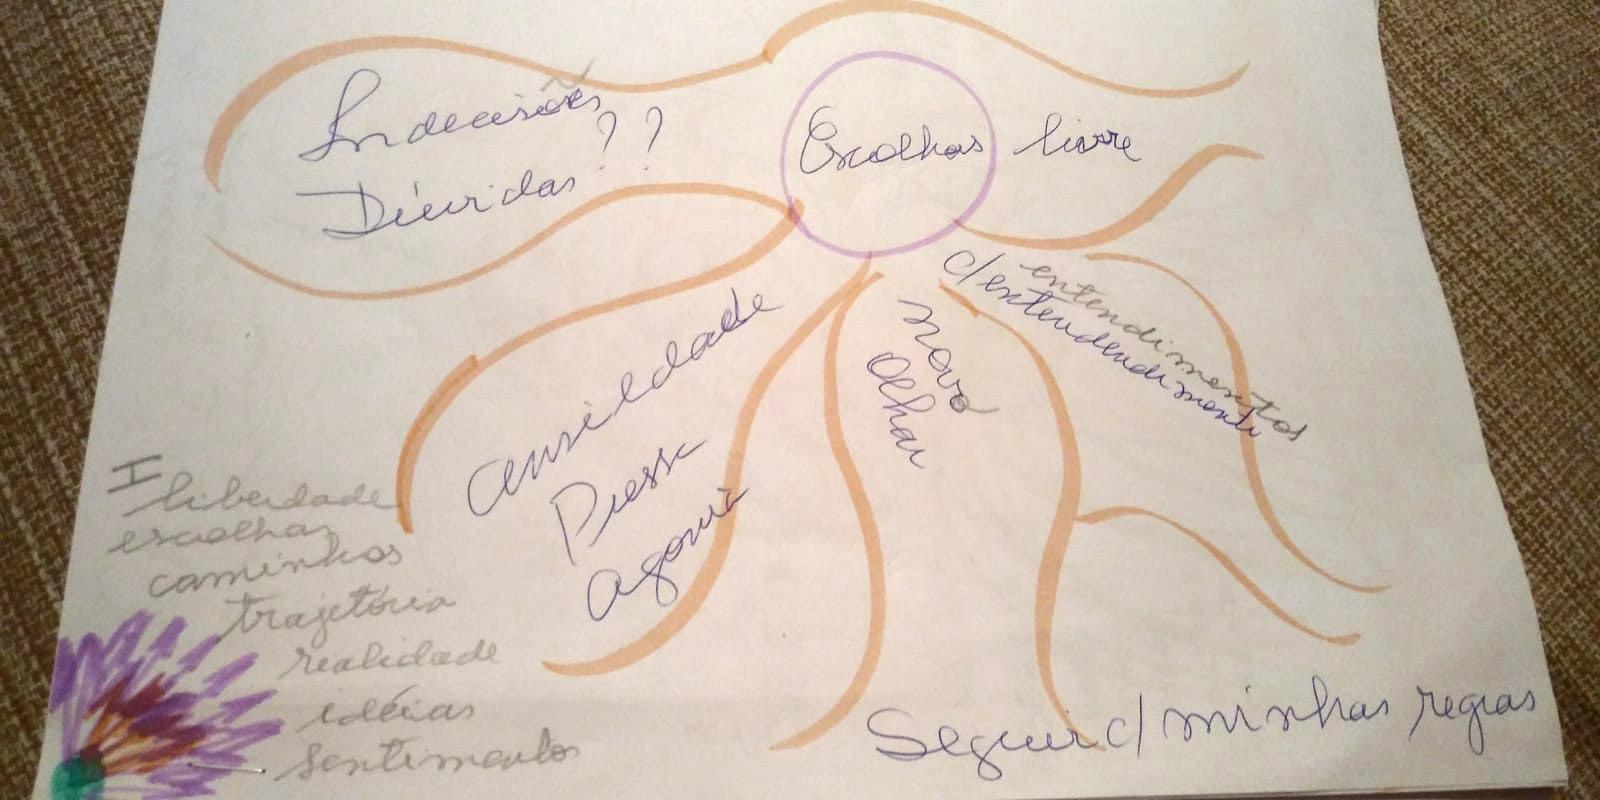 Indecisões
Dúvidas ??
Escolhas livre
c/ entendendimento
entendimentos
novo
olhar
ansildade
Pressa
agonia
I liberdade
escolhas
caminhos
trajetória
realidade
idéias
sentimentos
Seguir c/ minhas regras